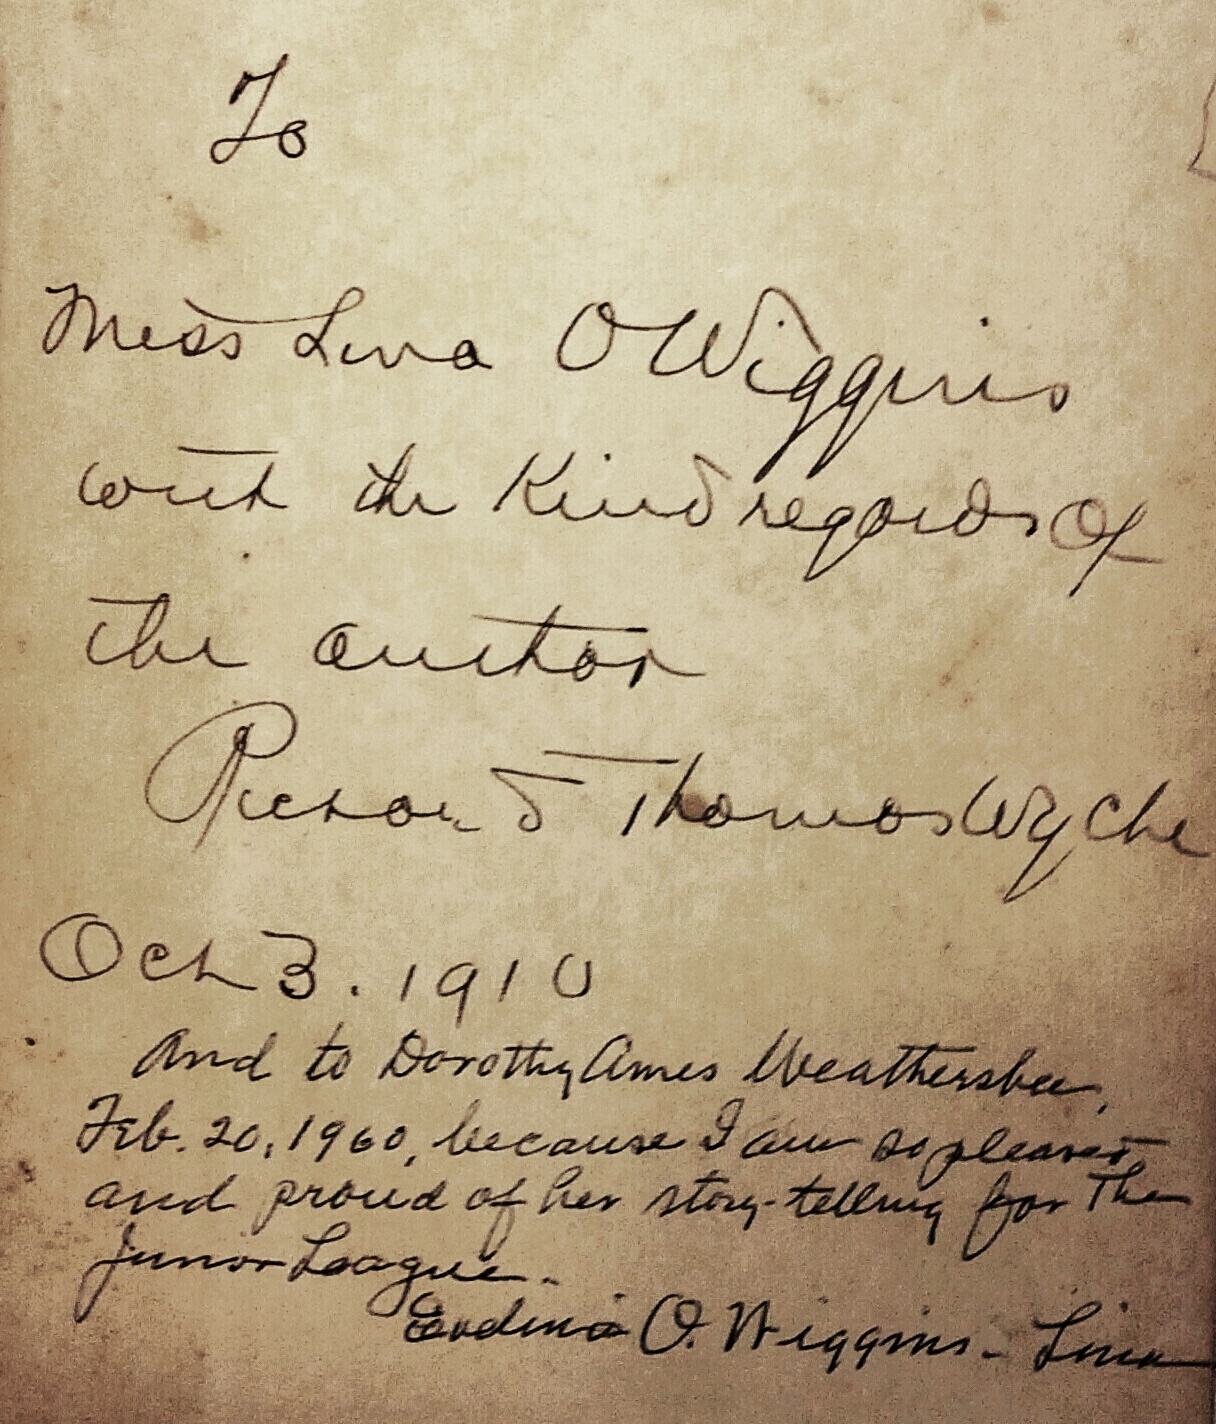 To
Miss Lina O Wiggins
with the Kind regards of
the author
Richard Thomas Wyche
Oct 3. 1910
And to Dorothy Ames Weathersbee,
Feb. 20, 1960, because I am so pleased
and proud of her story-telling for The
Junior League.
O. Wiggins - Lina